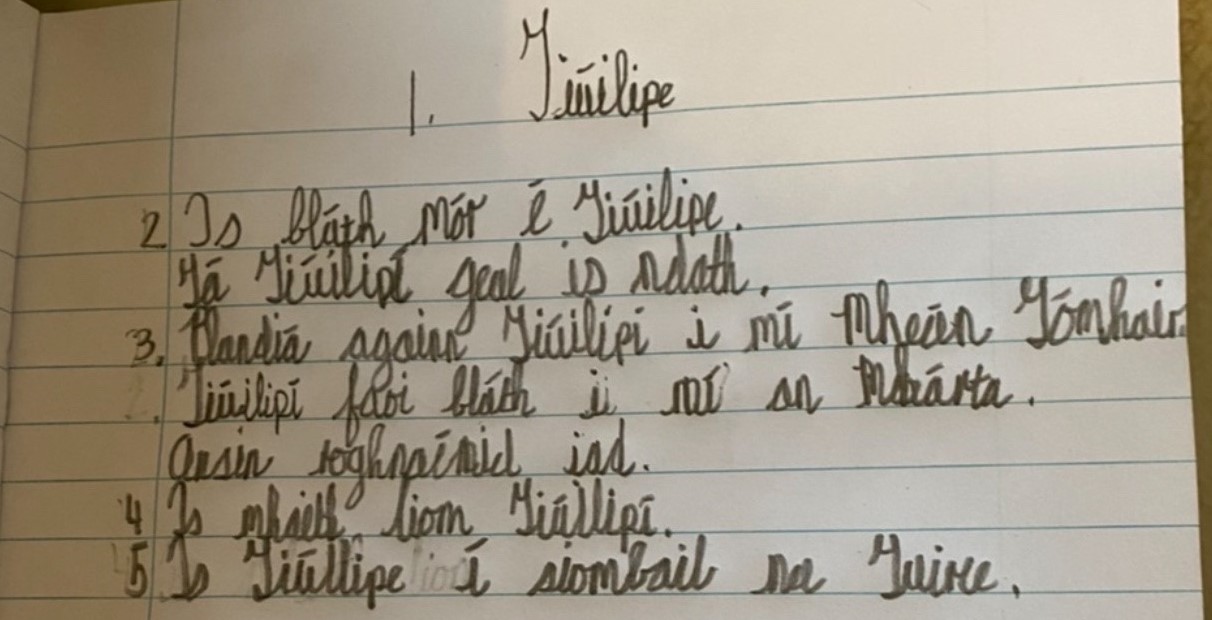 1. Tiúilipe
2 Is bláth mór é Tiúilipe.
Tá Tiúilipí geal is ndath.
3. Plandiá againn Tiúilipí i mí Mheán Tómhair
. Tiúilipí faoi bláth i mí an Mháárta.
Ansin roghnaímid iad.
4 Is mhaith liom Tiúilipí.
5 Is Tiúllipe í siombail na Tuirce.